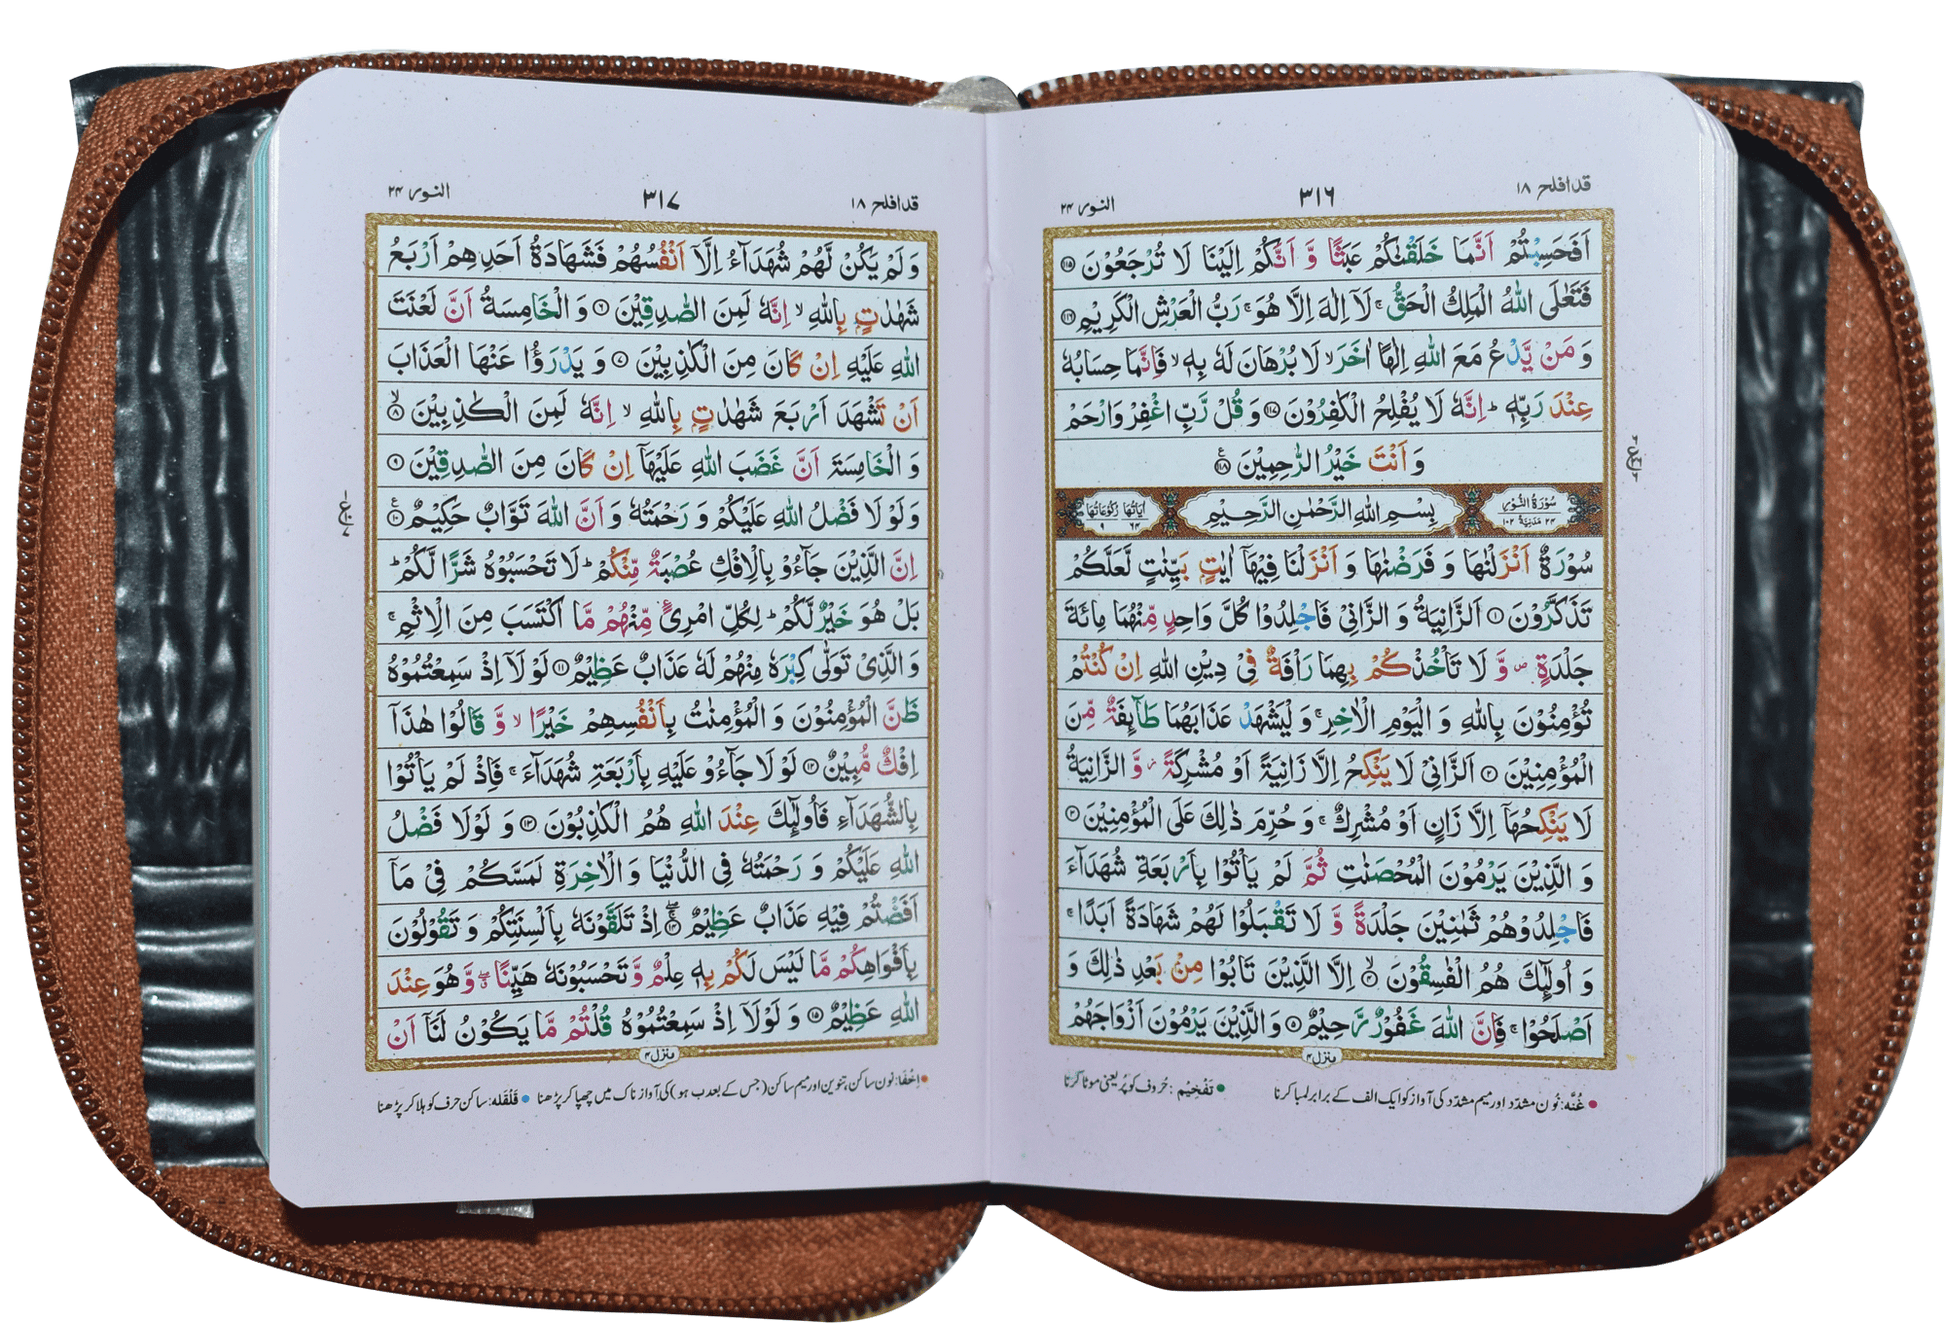 قد افلح ١٨
٣١٦
النور ٢٤
اَفَحَسِبْتُمْ اَنَّمَا خَلَقْنٰكُمْ عَبَثًا وَّ اَنَّكُمْ اِلَيْنَا لَا تُرْجَعُوْنَ ١١٥
فَتَعٰلَى اللّٰهُ الْمَلِكُ الْحَقُّ ۚ لَاۤ اِلٰهَ اِلَّا هُوَ ۚ رَبُّ الْعَرْشِ الْكَرِيْمِ ١١٦
وَ مَنْ يَّدْعُ مَعَ اللّٰهِ اِلٰهًا اٰخَرَ ۙ لَا بُرْهَانَ لَهٗ بِهٖ ۙ فَاِنَّمَا حِسَابُهٗ
عِنْدَ رَبِّهٖ ؕ اِنَّهٗ لَا يُفْلِحُ الْكٰفِرُوْنَ ١١٧ وَ قُلْ رَّبِّ اغْفِرْ وَارْحَمْ
وَ اَنْتَ خَيْرُ الرّٰحِمِيْنَ ١١٨
سُوْرَةُ النُّوْرِ ٢٤ مَدَنِيَّةٌ ١٠٢
بِسْمِ اللّٰهِ الرَّحْمٰنِ الرَّحِيْمِ
اٰيَاتُهَا ٦٤ رُكُوْعَاتُهَا ٩
سُوْرَةٌ اَنْزَلْنٰهَا وَ فَرَضْنٰهَا وَ اَنْزَلْنَا فِيْهَاۤ اٰيٰتٍۭ بَيِّنٰتٍ لَّعَلَّكُمْ
تَذَكَّرُوْنَ ١ اَلزَّانِيَةُ وَ الزَّانِيْ فَاجْلِدُوْا كُلَّ وَاحِدٍ مِّنْهُمَا مِائَةَ
جَلْدَةٍ ۪ وَّ لَا تَاْخُذْكُمْ بِهِمَا رَاْفَةٌ فِيْ دِيْنِ اللّٰهِ اِنْ كُنْتُمْ
تُؤْمِنُوْنَ بِاللّٰهِ وَ الْيَوْمِ الْاٰخِرِ ۚ وَ لْيَشْهَدْ عَذَابَهُمَا طَآىِٕفَةٌ مِّنَ
الْمُؤْمِنِيْنَ ٢ اَلزَّانِيْ لَا يَنْكِحُ اِلَّا زَانِيَةً اَوْ مُشْرِكَةً ؗ وَّ الزَّانِيَةُ
لَا يَنْكِحُهَاۤ اِلَّا زَانٍ اَوْ مُشْرِكٌ ۚ وَ حُرِّمَ ذٰلِكَ عَلَى الْمُؤْمِنِيْنَ ٣
وَ الَّذِيْنَ يَرْمُوْنَ الْمُحْصَنٰتِ ثُمَّ لَمْ يَاْتُوْا بِاَرْبَعَةِ شُهَدَآءَ
فَاجْلِدُوْهُمْ ثَمٰنِيْنَ جَلْدَةً وَّ لَا تَقْبَلُوْا لَهُمْ شَهَادَةً اَبَدًا ۚ
وَ اُولٰٓىِٕكَ هُمُ الْفٰسِقُوْنَ ٤ اِلَّا الَّذِيْنَ تَابُوْا مِنْۢ بَعْدِ ذٰلِكَ وَ
اَصْلَحُوْا ۚ فَاِنَّ اللّٰهَ غَفُوْرٌ رَّحِيْمٌ ٥ وَالَّذِيْنَ يَرْمُوْنَ اَزْوَاجَهُمْ
منزل ٤
غُنَّه: نون مشدّد اور میم مشدّد کی آواز کو ایک الف کے برابر لمبا کرنا
تَفْخِیْم: حُروف کو پُر یعنی موٹا کرنا
قد افلح ١٨
٣١٧
النور ٢٤
وَ لَمْ يَكُنْ لَّهُمْ شُهَدَآءُ اِلَّاۤ اَنْفُسُهُمْ فَشَهَادَةُ اَحَدِهِمْ اَرْبَعُ
شَهٰدٰتٍۭ بِاللّٰهِ ۙ اِنَّهٗ لَمِنَ الصّٰدِقِيْنَ ٦ وَ الْخَامِسَةُ اَنَّ لَعْنَتَ
اللّٰهِ عَلَيْهِ اِنْ كَانَ مِنَ الْكٰذِبِيْنَ ٧ وَ يَدْرَؤُا عَنْهَا الْعَذَابَ
اَنْ تَشْهَدَ اَرْبَعَ شَهٰدٰتٍۭ بِاللّٰهِ ۙ اِنَّهٗ لَمِنَ الْكٰذِبِيْنَ ٨
وَ الْخَامِسَةَ اَنَّ غَضَبَ اللّٰهِ عَلَيْهَاۤ اِنْ كَانَ مِنَ الصّٰدِقِيْنَ ٩
وَلَوْ لَا فَضْلُ اللّٰهِ عَلَيْكُمْ وَ رَحْمَتُهٗ وَ اَنَّ اللّٰهَ تَوَّابٌ حَكِيْمٌ ١٠
اِنَّ الَّذِيْنَ جَآءُوْ بِالْاِفْكِ عُصْبَةٌ مِّنْكُمْ ؕ لَا تَحْسَبُوْهُ شَرًّا لَّكُمْ ؕ
بَلْ هُوَ خَيْرٌ لَّكُمْ ؕ لِكُلِّ امْرِئٍ مِّنْهُمْ مَّا اكْتَسَبَ مِنَ الْاِثْمِ ۚ
وَ الَّذِيْ تَوَلّٰى كِبْرَهٗ مِنْهُمْ لَهٗ عَذَابٌ عَظِيْمٌ ١١ لَوْ لَاۤ اِذْ سَمِعْتُمُوْهُ
ظَنَّ الْمُؤْمِنُوْنَ وَ الْمُؤْمِنٰتُ بِاَنْفُسِهِمْ خَيْرًا ۙ وَّ قَالُوْا هٰذَاۤ
اِفْكٌ مُّبِيْنٌ ١٢ لَوْ لَا جَآءُوْ عَلَيْهِ بِاَرْبَعَةِ شُهَدَآءَ ۚ فَاِذْ لَمْ يَاْتُوْا
بِالشُّهَدَآءِ فَاُولٰٓىِٕكَ عِنْدَ اللّٰهِ هُمُ الْكٰذِبُوْنَ ١٣ وَ لَوْلَا فَضْلُ
اللّٰهِ عَلَيْكُمْ وَ رَحْمَتُهٗ فِي الدُّنْيَا وَ الْاٰخِرَةِ لَمَسَّكُمْ فِيْ مَاۤ
اَفَضْتُمْ فِيْهِ عَذَابٌ عَظِيْمٌ ١٤ اِذْ تَلَقَّوْنَهٗ بِاَلْسِنَتِكُمْ وَ تَقُوْلُوْنَ
بِاَفْوَاهِكُمْ مَّا لَيْسَ لَكُمْ بِهٖ عِلْمٌ وَّ تَحْسَبُوْنَهٗ هَيِّنًا ۖ وَّ هُوَ عِنْدَ
اللّٰهِ عَظِيْمٌ ١٥ وَ لَوْلَاۤ اِذْ سَمِعْتُمُوْهُ قُلْتُمْ مَّا يَكُوْنُ لَنَاۤ اَنْ
منزل ٤
اِخْفَا: نون ساکن، تنوین اور میم ساکن (جس کے بعد ب ہو) کی آواز ناک میں چھپا کر پڑھنا
قَلْقَلَه: ساکن حرف کو ہلا کر پڑھنا